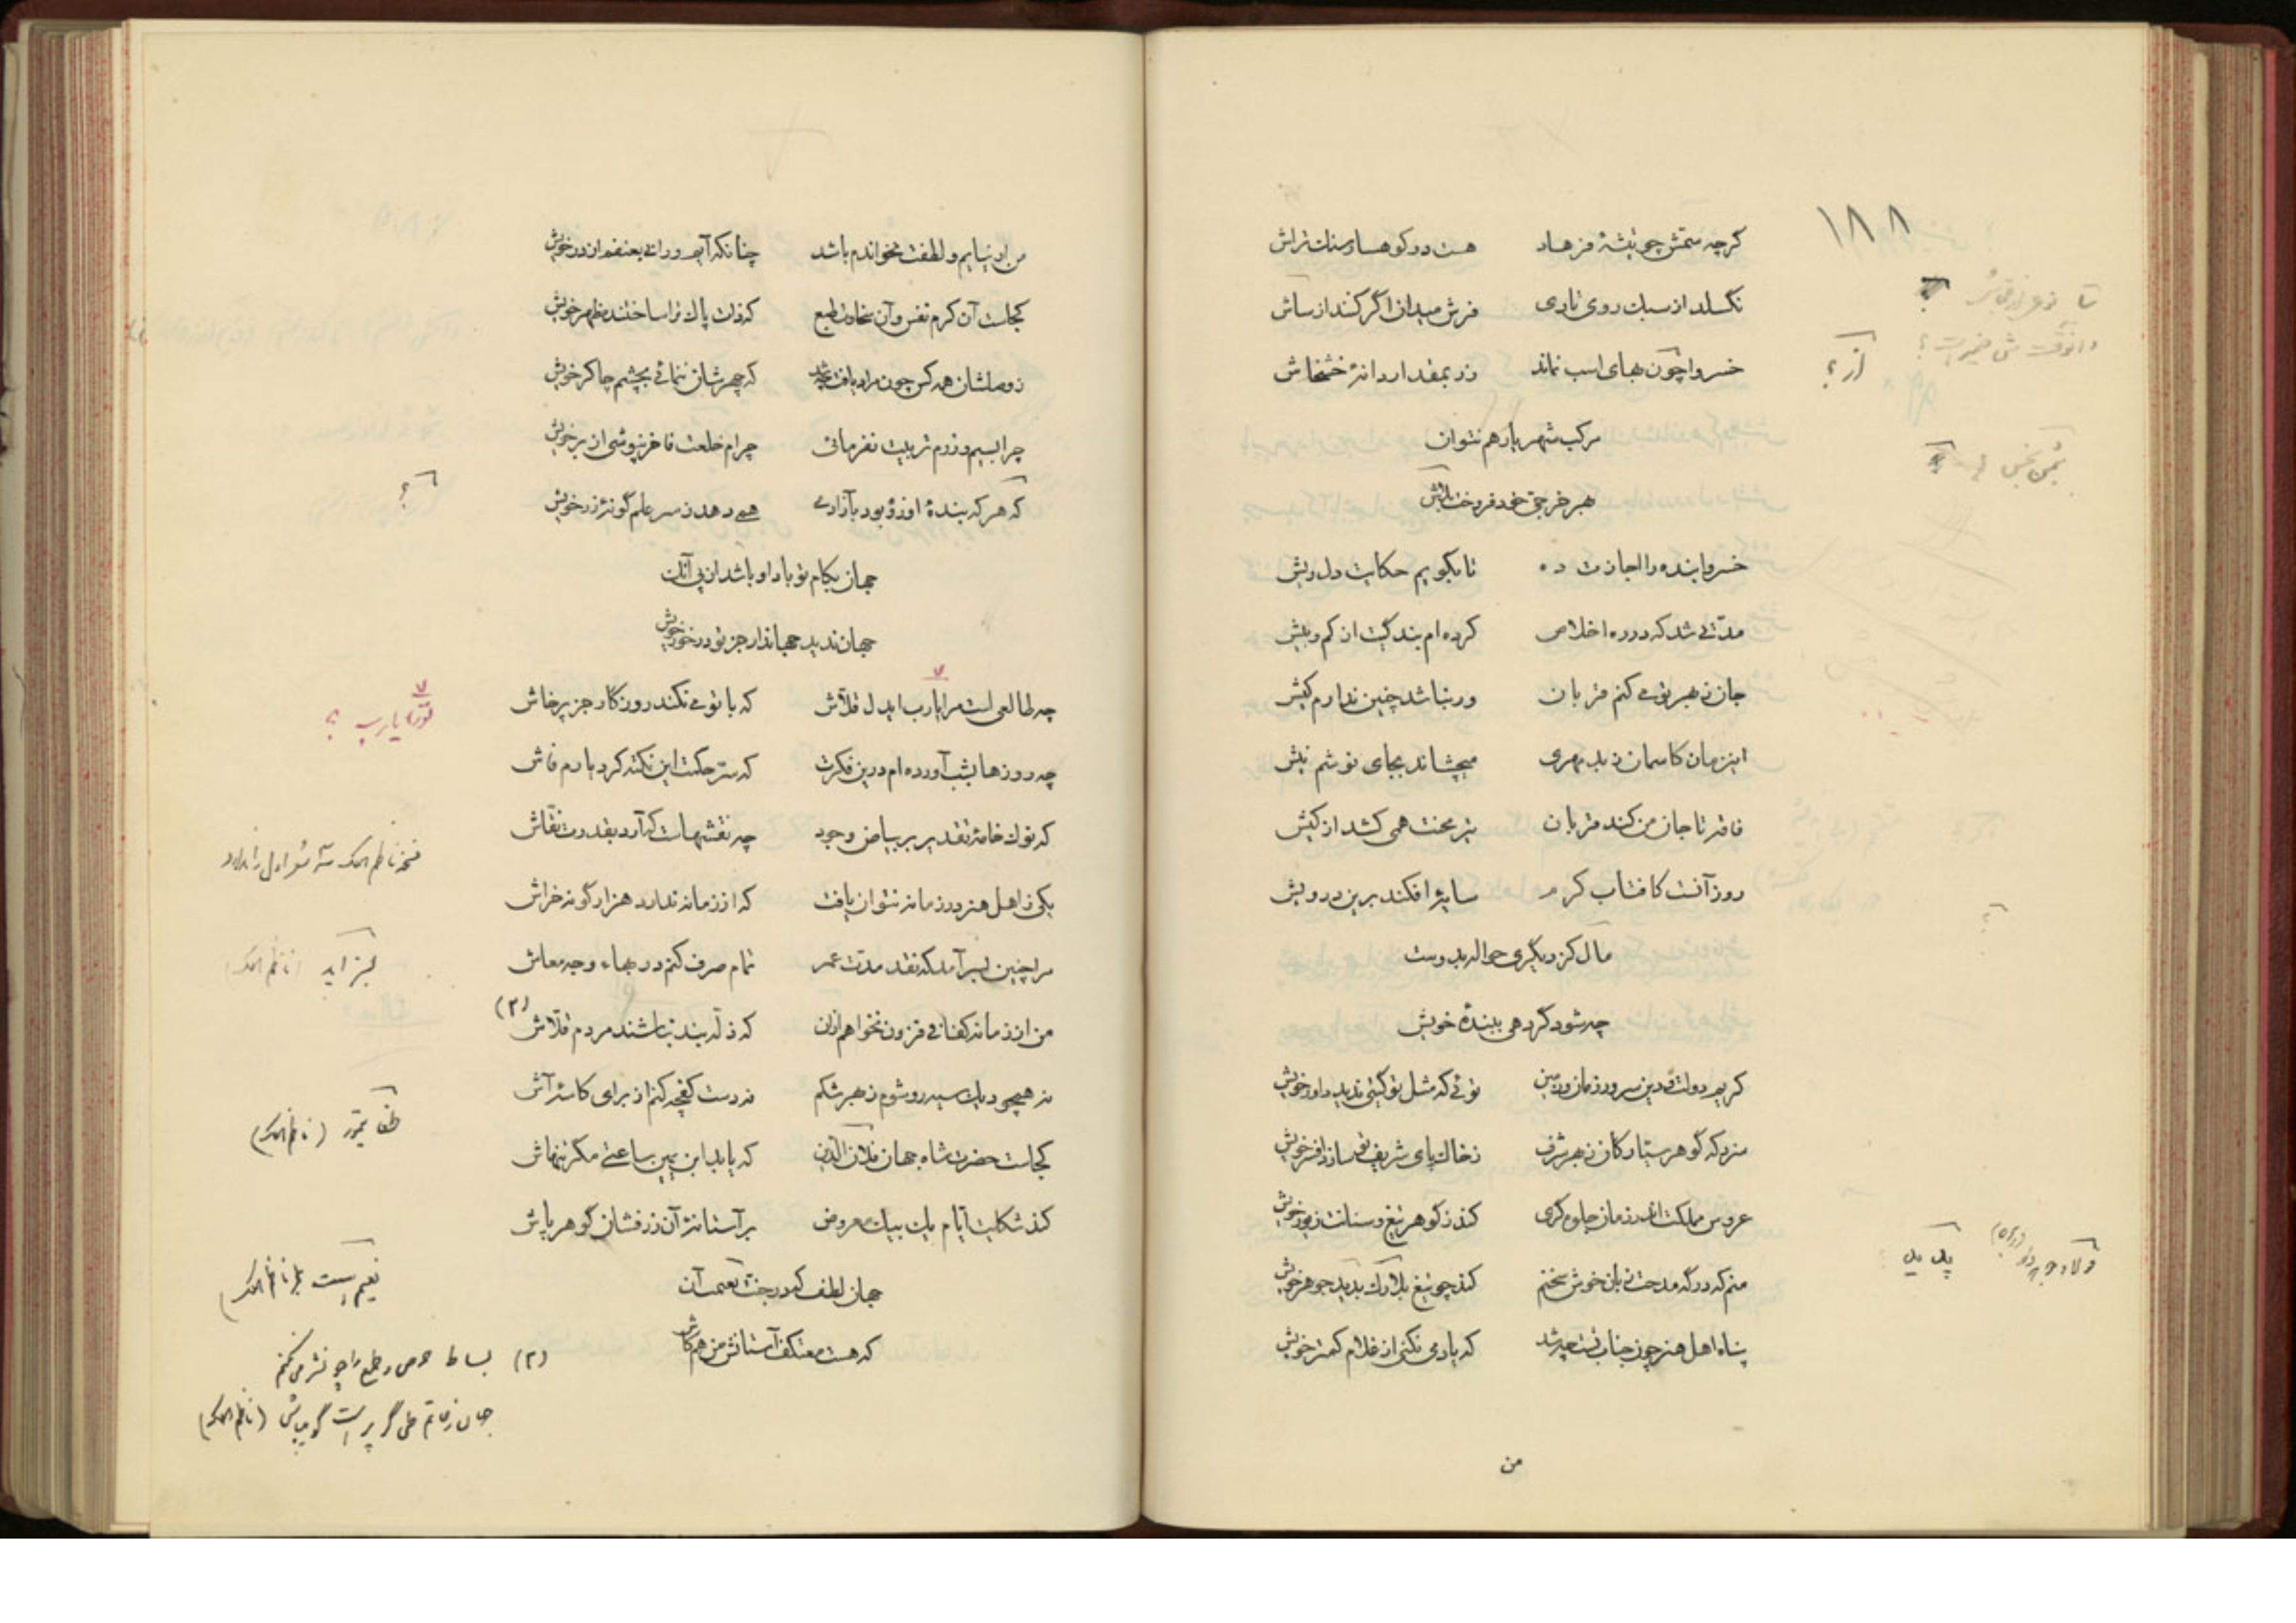 ۱۸۸
گرچه سمّش چو تیشهٔ فرهاد هست در کوهسار سنگ تراش
نگسلد از سبک روی تاری فرش میدان اگر کنند از لاش
خسروا چون بهای اسب نماند زر بمقدار دانهٔ خشخاش
مرکب شهریار هم نتوان
بهر خرجی خود فروخت
خسروا بنده را اجازت ده تا بگویم حکایت دل ریش
مدّتی شد که در ره اخلاص کرده‌ام بندگیت از کم و بیش
جان ز بهر تو می کنم قربان ور نباشد چنین ندارم کیش
این زمان کاسمان ز بد مهری میچشاند بجای نوشم نیش
فاقه تا جان من کند قربان تیر محنت همی کشد از کیش
روز آنست کافتاب کرم سایهٔ افکند برین درویش
مال کز دیگری حواله بدوست
چه شود گر دهی ببندهٔ خویش
کریم دولت و دین سرور زمان و زمین توئی که مثل تو گیتی ندید داور خویش
سزد که گوهر ستارگان ز بهر شرف ز خاک پای شریف تو سازد افسر خویش
عروس مملکت اندر زمان جلوه گری کند ز گوهر تیغ و سنانت زیور خویش
منم که در گه مدحت زبان خوش سخنم کند چو تیغ بلارک پدید جوهر خویش
پناه اهل هنر چون جناب تست چه شد که یاد می نکنی از غلام کمتر خویش
من
از؟
من ار نیایم و لطفت نخواندم باشد چنانکه آیم و رانی بعنفم از در خویش
کجاست آن کرم نفس و آن سخاوت طبع که ذات پاک ترا ساختند مظهر خویش
ز وصلشان همه کس چون مراد یافت چه شد که چهرشان ننمائی بچشم چاکر خویش
چرا بسیم و زرم تربیت نفرمائی چرام خلعت فاخر نپوشی از بر خویش
که هر که بندهٔ او زو بود بآزادی همی دهد ز سر علم گونهٔ زر خویش
جهان بکام تو بادا و باشد از پی آنک
جهان ندید جهاندار جز تو در خور خویش
چه طالعی است مرا یارب ای دل قلاّش که با تو می نکند روزگار جز پرخاش
چه روزها بشب آورده‌ام درین فکرت که سرّ حکمت این نکته کرد یارم فاش
که نوک خامهٔ تقدیر بر بیاض وجود چه نقشهاست که آرد بقدرت نقّاش
یکی ز اهل هنر در زمانه نتوان یافت که از زمانه ندارد هزار گونه خراش
مرا چنین بسر آمد که نقد مدّت عمر تمام صرف کنم در بهاء وجه معاش
من از زمانه کفافی فزون نخواهم ازان که ذلّه بند نباشند مردم قلاّش (۲)
نه همچو دیک سیه رو شوم ز بهر شکم نه دست کفچه کنم از برای کاسهٔ آش
کجاست حضرت شاه جهان فلان الدّین که یابد ابن یمین ساعتی مگر تنهاش
کند شکایت ایّام یک بیک معروض بر آستانهٔ آن زر فشان گوهر پاش
جهان لطف که در جنّت نعیمست آن
که هست معتکف آستانش من هم کاش
یارب ؟
نسخه ناظم الملک سه شعر اول را ندارد
(ناظم الملک)
تیمور (ناظم الملک)
(۲) بساط حرص و طمع را چو نشر می کنم
(ناظم الملک)